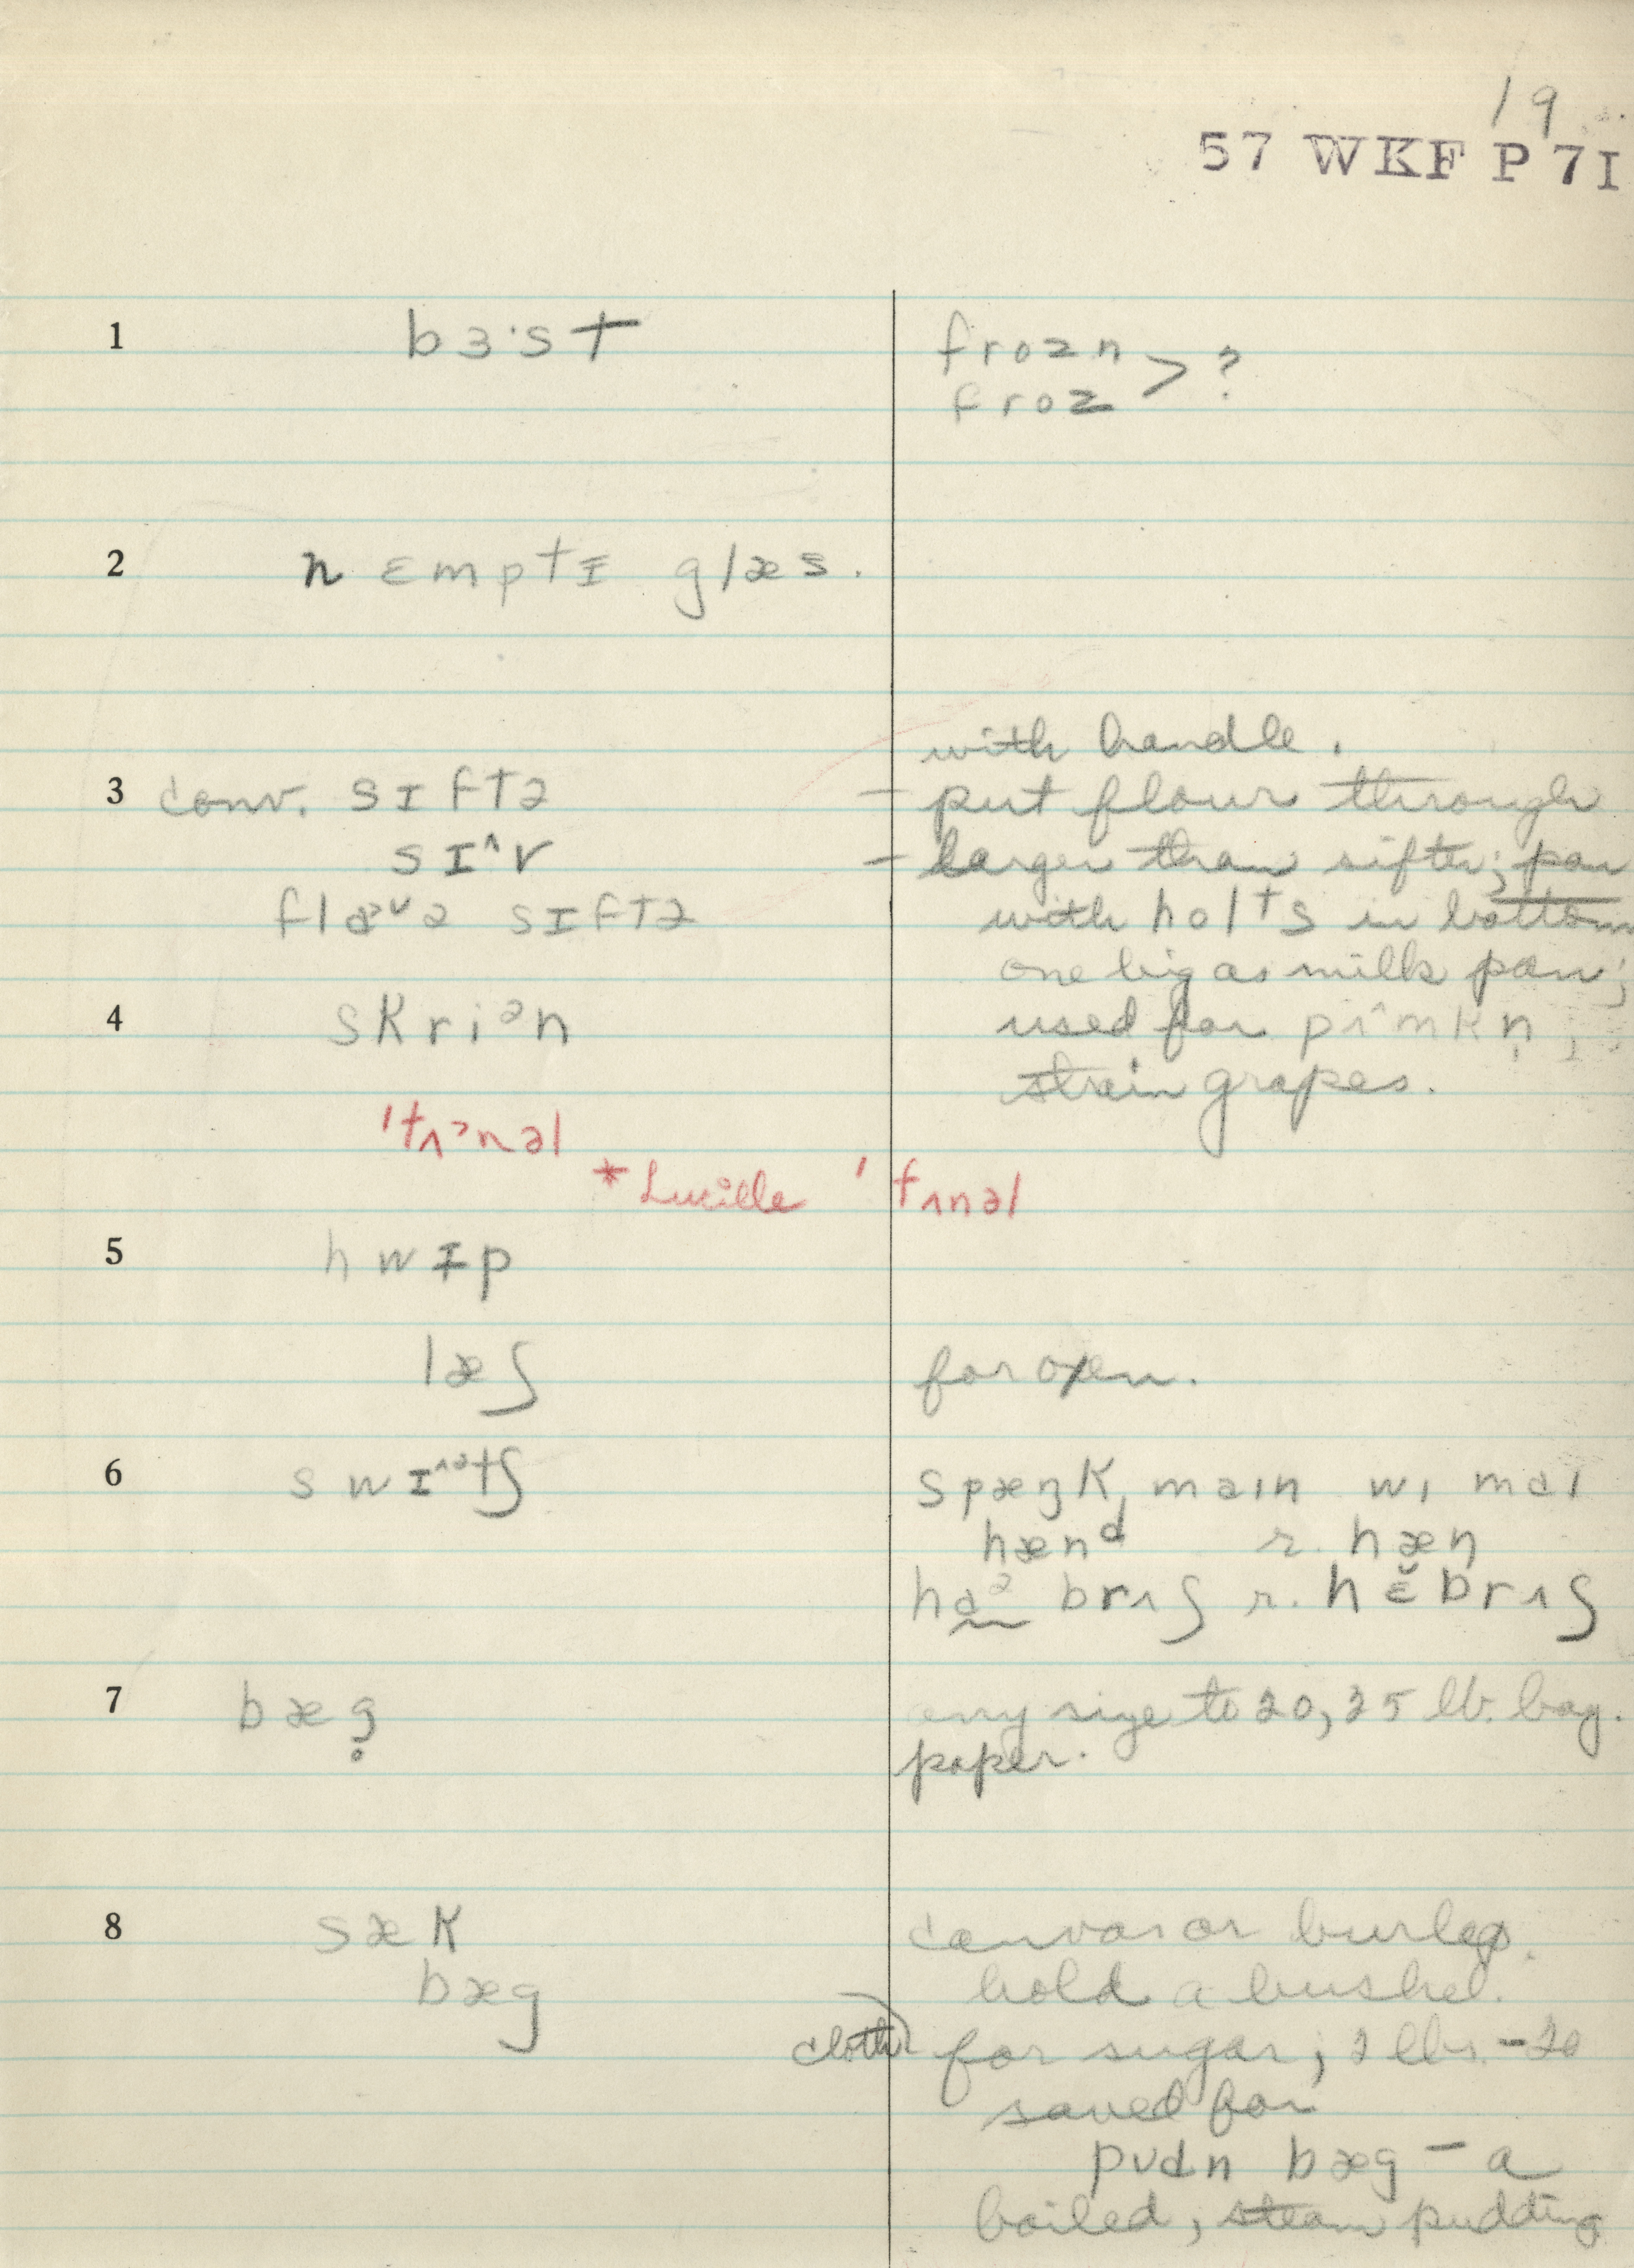 19
57 WKF P 7I
1 bɜ·st frozn > ?
froz
2 n ɛmptɪ glæs.
with handle.
3 conv. sɪftə – put flour through
sɪ^v – larger than sifter; pan
flɑᵊᵛə sɪftə with holᵗs in bottom
one big as milk pan;
4 skriᵊn used for pʌ^mkn̩;
strain grapes.
'tʌᵊnəl
*Lucille 'tʌnəl
5 hwɪp
læʃ for oxen.
6 swɪ^ᵊtʃ spæŋk maɪn wɪ maɪ
hænᵈ r. hæn
haᵊ brʌʃ r. hɛ̆brʌʃ
7 bæg̥ any size to 20, 25 lb. bag.
paper.
8 sæk canvas or burlap.
bæg hold a bushel.
cloth) for sugar; 2 lbs. – 20
saved for
pʊdn bæg – a
boiled, steam pudding